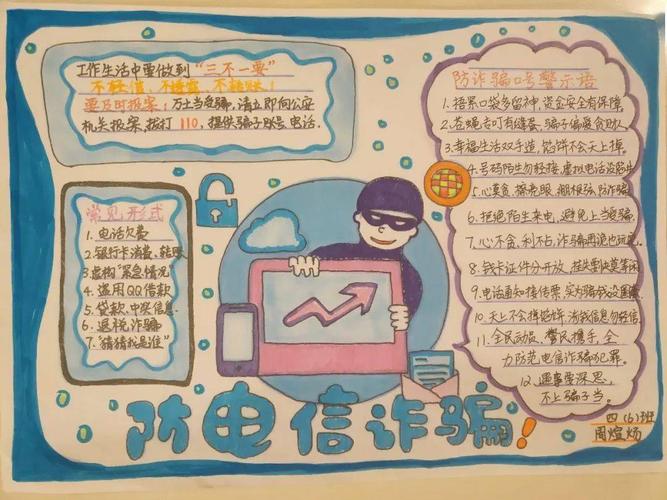 工作生活中要做到“三不一要”
不轻信，不透露，不转账！
要及时报案：万一上当受骗，请立即向公安
机关报案，拨打110，提供骗子账号、电话．
常见形式
1. 电话欠费
2. 银行卡消费、转账
3. 虚构“紧急情况”
4. 盗用QQ借款
5. 贷款、中奖信息．
6. 退税诈骗
7. “猜猜我是谁”
防诈骗口号警示语
1. 捂紧口袋多留神，资金安全有保障．
2. 苍蝇专叮有缝蛋，骗子偏骗贪财人
3. 幸福生活双手造，馅饼不会天上掉．
4. 号码陌生勿轻接，虚拟电话设陷
5. 心莫贪，擦亮眼，绷根弦，防诈骗
6. 拒绝陌生来电，避免上当受骗．
7. 心不贪，利不占，诈骗再
8. 钱卡证件分开放，
9. 电话通知接传票，实为骗钱设圈
10. 天上不会掉馅饼，消息勿轻信
11. 全民动员，警民携手，全
力防范电信诈骗犯罪．
12. 遇事要深思，
不上骗子当．
防电信诈骗！
四（6）班
周煊炀